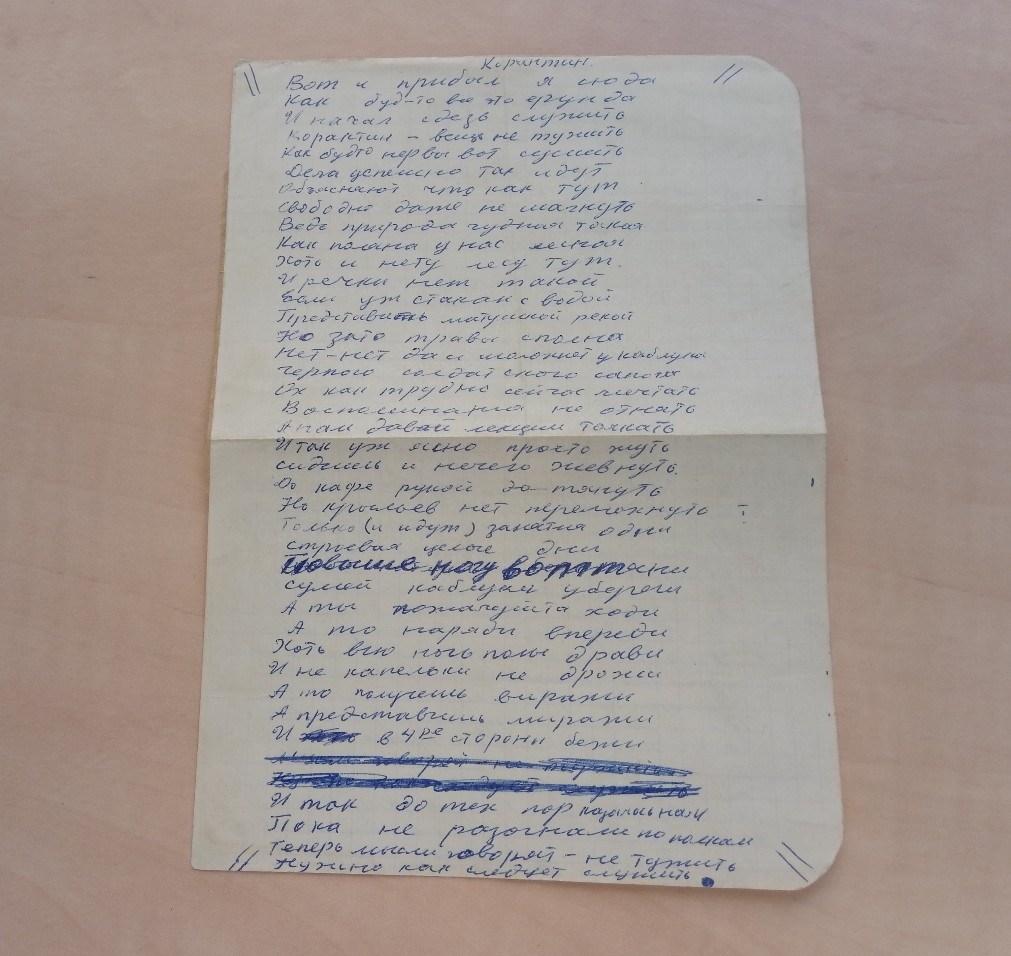 Карантин.
Вот и прибыл я сюда
Как буд-то все это ерунда
И начал здезь служить
Карантин - вещь не тужить
Как будто нервы вот сушить
Дела успешно так идут
Объяснают что как тут
Свободно даже не
Ведь природа чудная такая
Как поляна у нас лесная
Хоть и нету лесу тут.
И речки нет такой
Если уж стакан с водой
Представить матушкой рекой
Но зато травы сполна
Нет-нет да и у каблука
Черного солдатского сапога
Ох как трудно сейчас мечтать
Воспоминания не отнять
А нам давай лекции толкать
И так уж ясно просто жуть
сидишь и нечего жевнуть.
До кафе рукой до-тянуть
Но крыльев нет перемахнуть
Только (и идут) занятия одни
строевая целые дни
Повыше ногу
сумей каблуки убереги
А ты пожалуйста ходи
А то наряди впереди
Хоть всю ночь полы драви
И не капельки не дрожи
А то получишь виражи
А представишь миражи
И в 4ре сторони бежи
И так до тех пор казалось нам
Пока не разогнали по полкам
Теперь мысли говорят - не тужить
Нужно как следует служить.